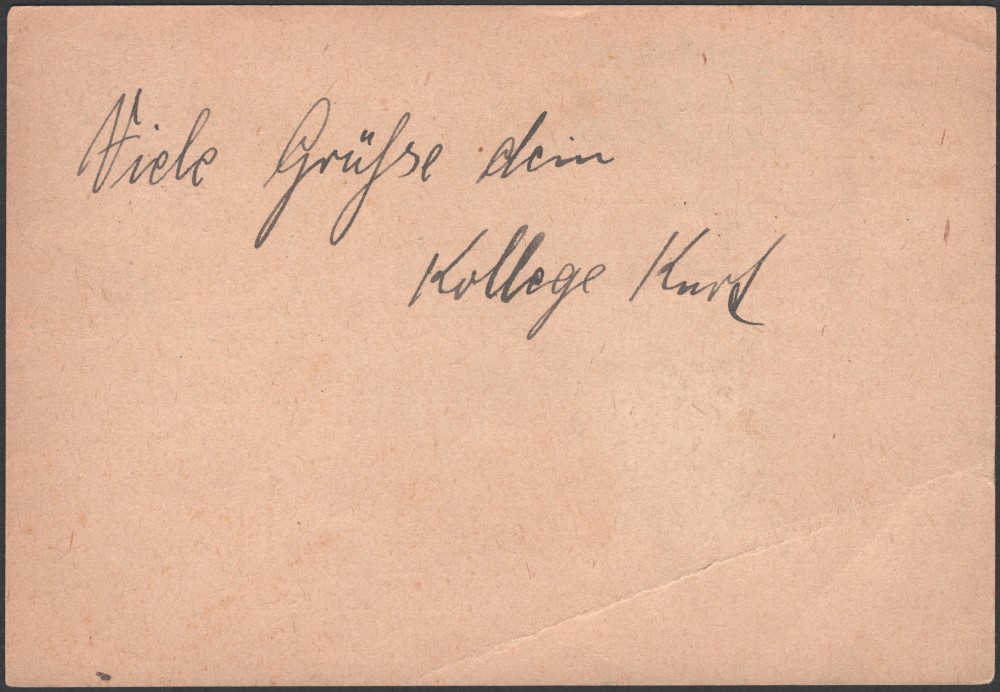 Viele Grüße dein
Kollege Kurt